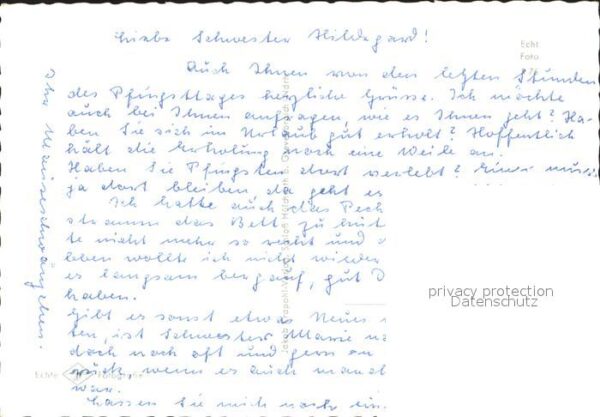 Liebe Schwester Hildegard!
Auch Ihnen von den letzten Stunden
des Pfingsttages herzliche Grüsse. Ich möchte
auch bei Ihnen anfragen, wie es Ihnen geht? Ha-
ben Sie sich im Urlaub gut erholt? Hoffentlich
hält die Erholung noch eine Weile an.
Haben Sie Pfingsten dort verlebt? Einer muss
ja dort bleiben da geht es
Ich hatte auch das Pech
stramm das Bett zu hüt
te nicht mehr so recht und
bben wollte ich nicht wieder
es langsam bergauf, gut D
haben.
Gibt es sonst etwas Neues
ten, ist Schwester Marie
doch noch oft und gern an
rück, wenn es auch manch
war.
Lassen Sie mich noch ein
Ihr Mäuseschwänzchen.
Echt
Foto
Echte Fotografie
privacy protection
Datenschutz